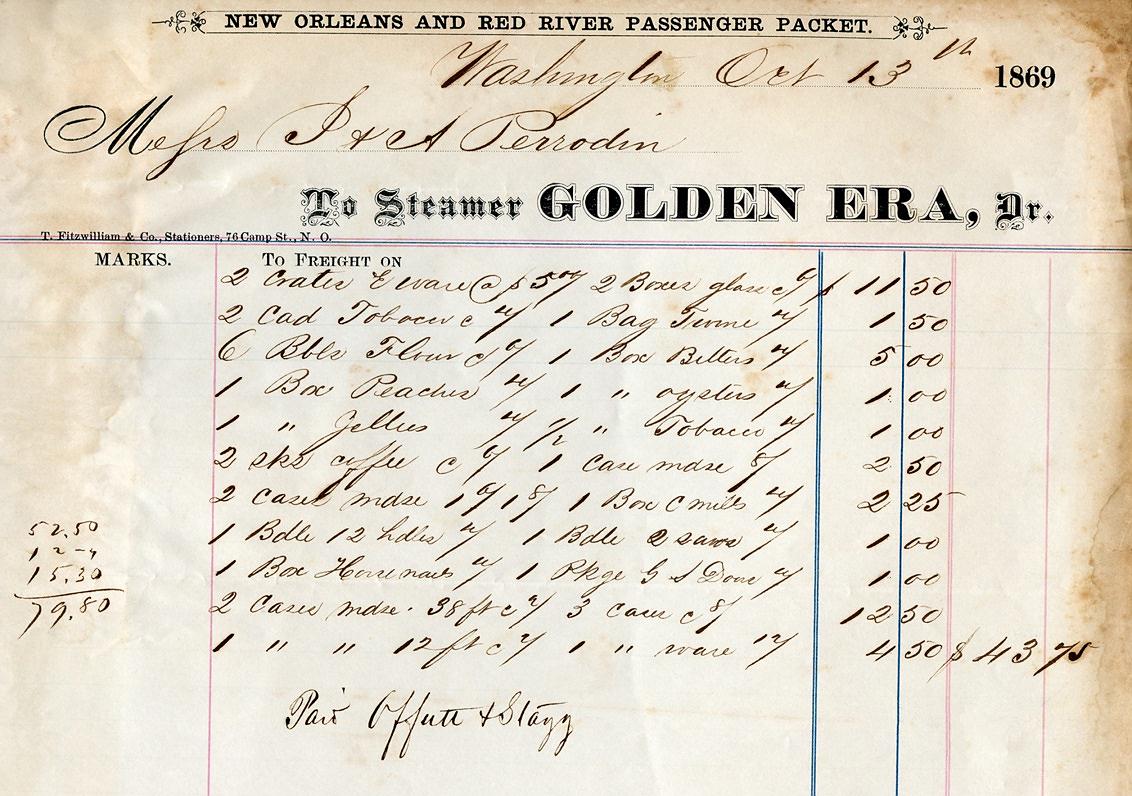 NEW ORLEANS AND RED RIVER PASSENGER PACKET.
Washington Oct 13th 1869
Messrs J & A Perrodin
To Steamer GOLDEN ERA, Dr.
T. Fitzwilliam & Co., Stationers, 76 Camp St., N. O.
MARKS. TO FREIGHT ON
2 Crates E ware @ $5 2 Boxes glass $ 11 50
2 Cad Tobacco 1 Bag Twine 1 50
6 Bbls Flour 1 Box Bitters 5 00
1 Box Peaches 1 " oysters 1 00
1 " Jellies 1/2 " Tobacco 1 00
2 sks coffee 1 Case mdse 2 50
2 Cases mdse 1 Box C mills 2 25
1 Bdle 12 hdles 1 Bdle 2 saws 1 00
1 Box Horse nails 1 Pkge G S 1 00
2 Cases mdse. 38 ft 3 Cases 12 50
1 " " 12 ft 1 " ware 4 50 $ 43 75
52.50
15.30
79.80
Paid Offutt & Stagg